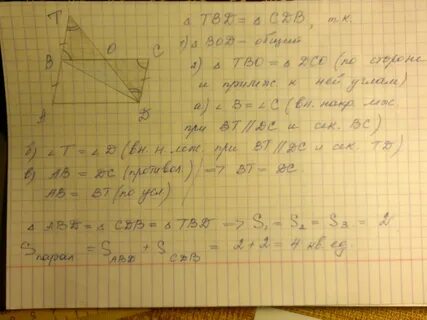 T
B O C
A D
△ TBD = △ CDB, т.к.
1) △ BOD - общий
2) △ TBO = △ DCO (по стороне
и прилеж. к ней углам)
а) ∠ B = ∠ C (вн. накр. леж.
при BT || DC и сек. BC)
б) ∠ T = ∠ D (вн. н. леж. при BT || DC и сек. TD)
в) AB = DC (противол.) ⇒ BT = DC
AB = BT (по усл)
△ ABD = △ CDB = △ TBD ⇒ S₁ = S₂ = S₃ = 2
Sпарал = S ABD + S CDB = 2 + 2 = 4 кв. ед.